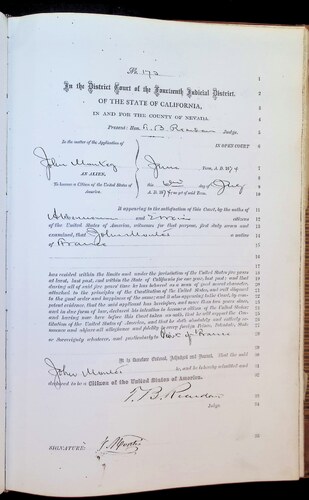 No. 173
In the District Court of the Fourteenth Judicial District,
OF THE STATE OF CALIFORNIA,
IN AND FOR THE COUNTY OF NEVADA.
Present: Hon. T. B. Reardan Judge.
In the matter of the Application of
IN OPEN COURT
John
June Term, A. D. 187
AN ALIEN,
To become a Citizen of the United States of America.
this day of July
A. D. 187
It appearing to the satisfaction of this Court, by the oaths of
and citizens
of the United States of America, witnesses for that purpose, first duly sworn and
examined, that John a native
of France
has resided within the limits and under the jurisdiction of the United States five years
at least, last past, and within the State of California for one year, last past; and that
during all of said five years' time he has behaved as a man of good moral character,
attached to the principles of the Constitution of the United States, and well disposed
to the good order and happiness of the same; and it also appearing to the Court, by com-
petent evidence, that the said applicant has heretofore, and more than two years since,
and in due form of law, declared his intention to become a citizen of the United States;
and having now here before this Court taken an oath, that he will support the Con-
stitution of the United States of America, and that he doth absolutely and entirely re-
nounce and abjure all allegiance and fidelity to every foreign Prince, Potentate, State
or Sovereignty whatever, and particularly to of France
It is therefore Ordered, Adjudged and Decreed, That the said
John be, and he is hereby admitted and
declared to be a Citizen of the United States of America.
T. B. Reardan
Judge
SIGNATURE: